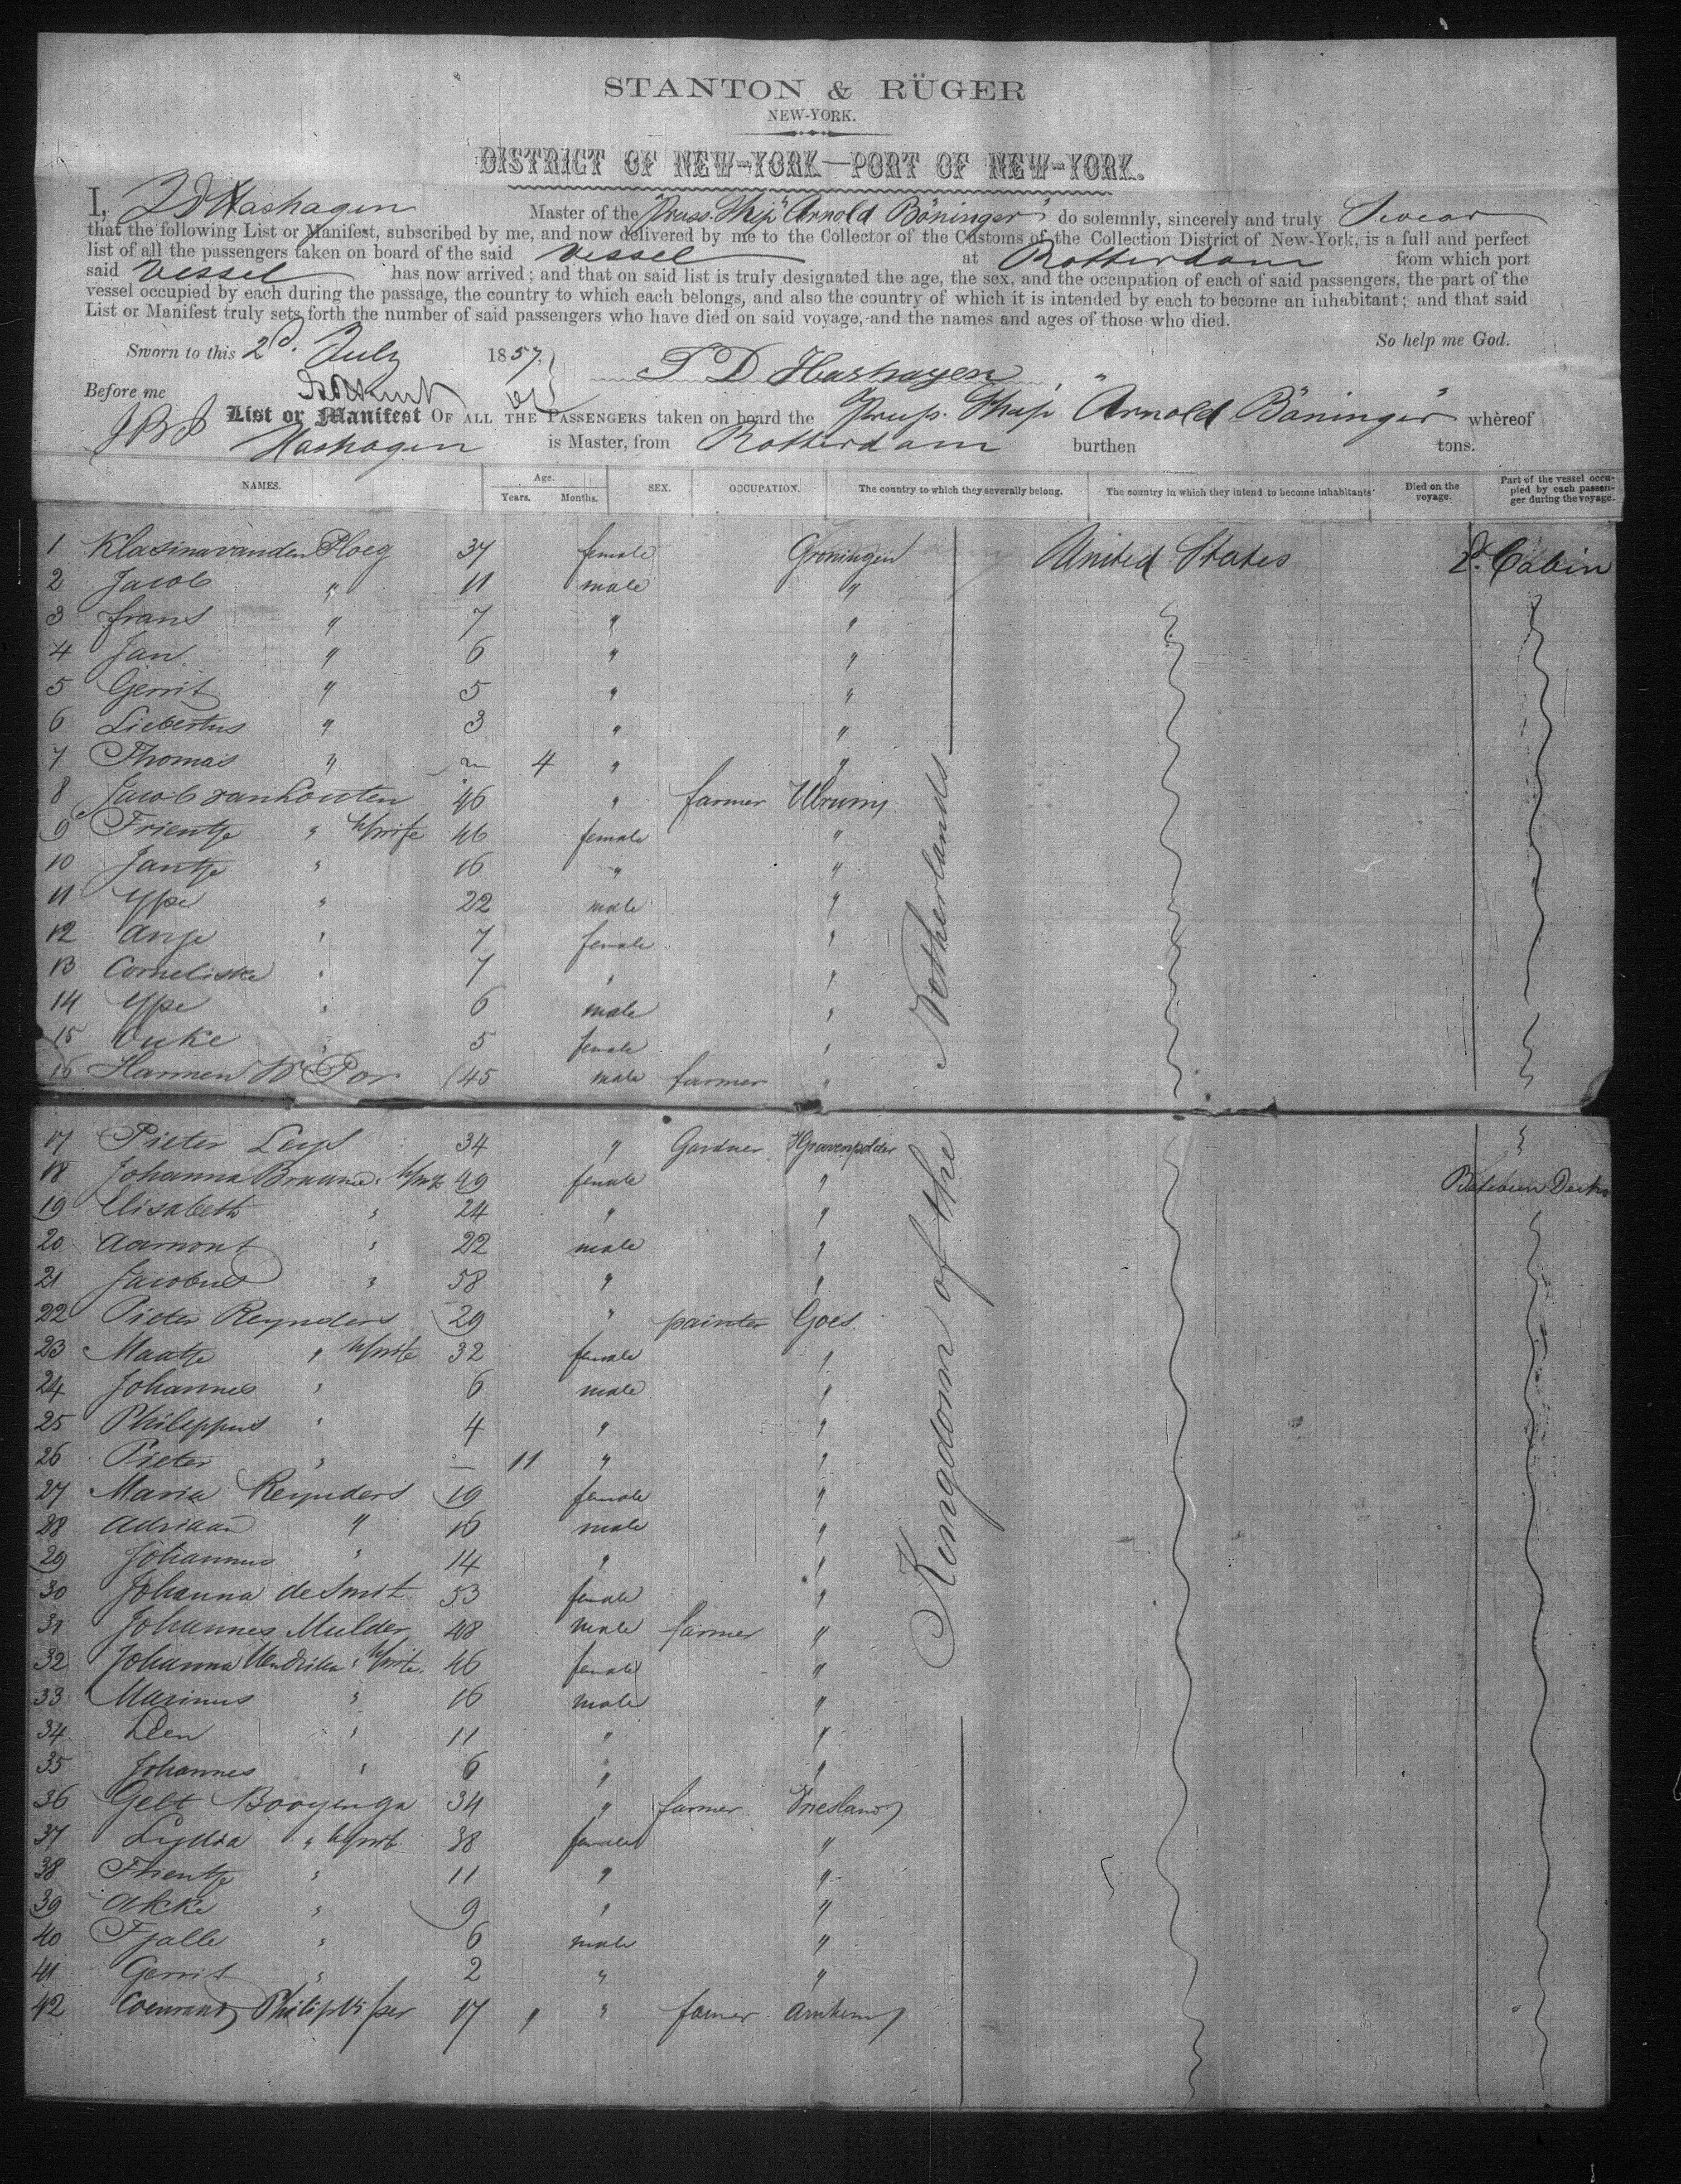 STANTON & RÜGER
NEW-YORK.
DISTRICT OF NEW-YORK—PORT OF NEW-YORK.
I, Hashagen Master of the "Pruss. Ship" Arnold Böninger" do solemnly, sincerely and truly Swear
that the following List or Manifest, subscribed by me, and now delivered by me to the Collector of the Customs of the Collection District of New-York, is a full and perfect
list of all the passengers taken on board of the said Vessel at Rotterdam from which port
said Vessel has now arrived; and that on said list is truly designated the age, the sex, and the occupation of each of said passengers, the part of the
vessel occupied by each during the passage, the country to which each belongs, and also the country of which it is intended by each to become an inhabitant; and that said
List or Manifest truly sets forth the number of said passengers who have died on said voyage, and the names and ages of those who died.
So help me God.
Sworn to this 2d. July 1857.
Before me
Hashagen
List or Manifest OF ALL THE PASSENGERS taken on board the Prus. Ship "Arnold Böninger" whereof
Hashagen is Master, from Rotterdam burthen tons.
NAMES. Age. Years. Months. SEX. OCCUPATION. The country to which they severally belong. The country in which they intend to become inhabitants. Died on the voyage. Part of the vessel occupied by each passenger during the voyage.
1 Klasina van den Ploeg 37 female Groningen United States 2d. Cabin
2 Jacob " 11 male "
3 frans " 7 " "
4 Jan " 6 " "
5 Gerrit " 5 " "
6 Liebertus " 3 " "
7 Thomas " 4 " "
8 Jacob van Houten 46 " farmer Ulrum
9 Trientje " wife 46 female "
10 Jantje " 16 " "
11 Ype " 22 male "
12 Antje " 7 female "
13 Corneliske " 7 " "
14 Ype " 6 male "
15 Auke 5 female "
16 Harmen W Por 45 male farmer "
17 Pieter Leys 34 " Gardner HGravenpolder
18 Johanna wife 49 female " Between Decks
19 Elisabeth " 24 " "
20 Aarnout " 22 male "
21 Jacobus " 58 " "
22 Pieter Reynders 29 " painter Goes.
23 Maatje " wife 32 female "
24 Johannes " 6 male "
25 Philippus " 4 " "
26 Pieter " — 11 " "
27 Maria Reynders 19 female "
28 Adriaan " 16 male "
29 Johannes " 14 " "
30 Johanna de Smit 53 female "
31 Johannes Mulder 48 male farmer "
32 Johanna Hendrika " wife. 46 female "
33 Marinus " 16 male "
34 Leen " 11 " "
35 Johannes " 6 " "
36 Gelt Booyenga 34 " farmer Vriesland
37 Lydia " wife 38 female "
38 Trientje " 11 " "
39 Akke " 9 " "
40 Tjalle " 6 male "
41 Gerrit " 2 " "
42 Coenraad Philip Visser 17 " " farmer Arnhem
Kingdom of the Netherlands